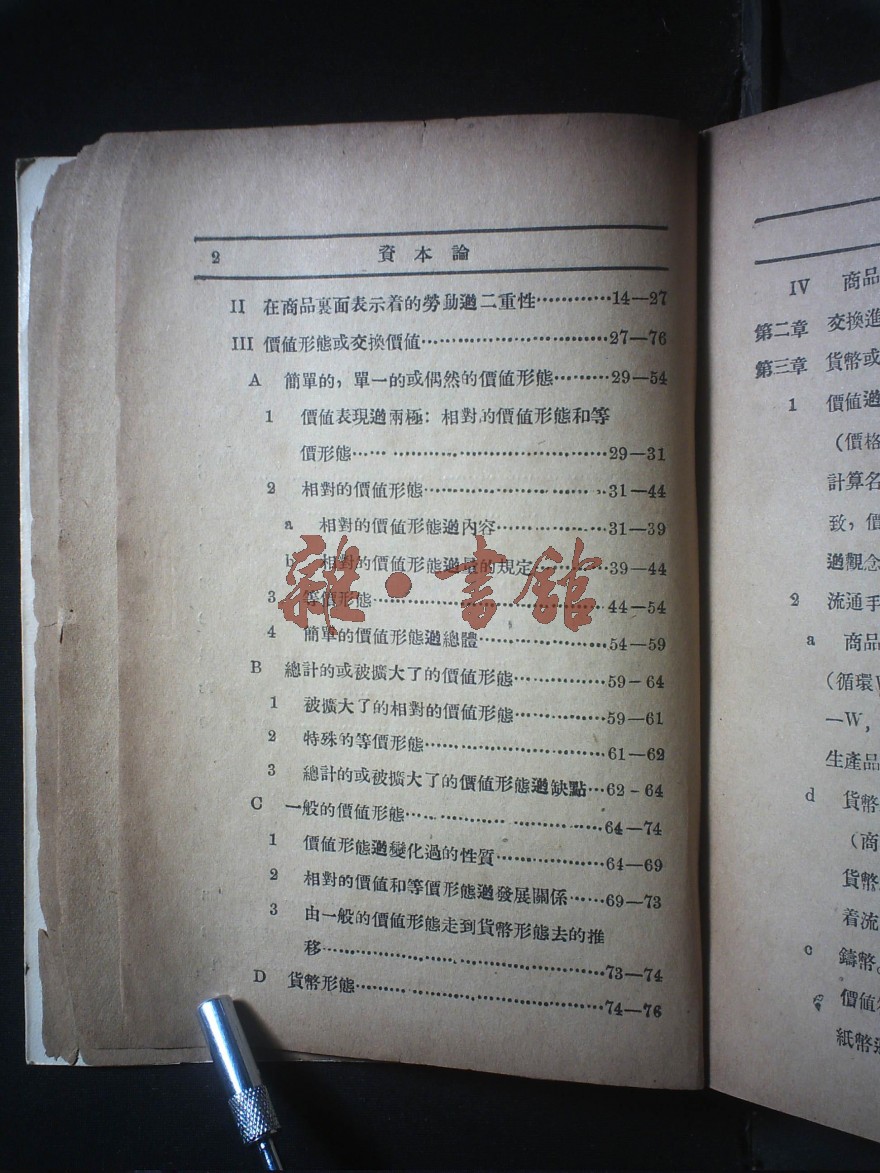 2 資本論
II 在商品裏面表示着的勞動遒二重性…………14—27
III 價值形態或交換價值……………………………27—76
A 簡單的，單一的或偶然的價值形態………29—54
1 價值表現遒兩極：相對的價值形態和等
價形態……………………………………29—31
2 相對的價值形態…………………………31—44
a 相對的價值形態遒內容………………31—39
b 相對的價值形態遒量的規定…………39—44
3 等價形態…………………………………44—54
4 簡單的價值形態遒總體…………………54—59
B 總計的或被擴大了的價值形態……………59-64
1 被擴大了的相對的價值形態……………59—61
2 特殊的等價形態…………………………61—62
3 總計的或被擴大了的價值形態遒缺點…62-64
C 一般的價值形態……………………………64—74
1 價值形態遒變化過的性質………………64—69
2 相對的價值和等價形態遒發展關係……69—73
3 由一般的價值形態走到貨幣形態去的推
移…………………………………………73—74
D 貨幣形態……………………………………74—76
雜·書館
IV 商品
第二章 交換進
第三章 貨幣或
1 價值遒
（價格
計算名
致，價
遒觀念
2 流通手
a 商品
（循環W
—W，
生產品
d 貨幣
（商
貨幣
着流
c 鑄幣。
價值
紙幣遒